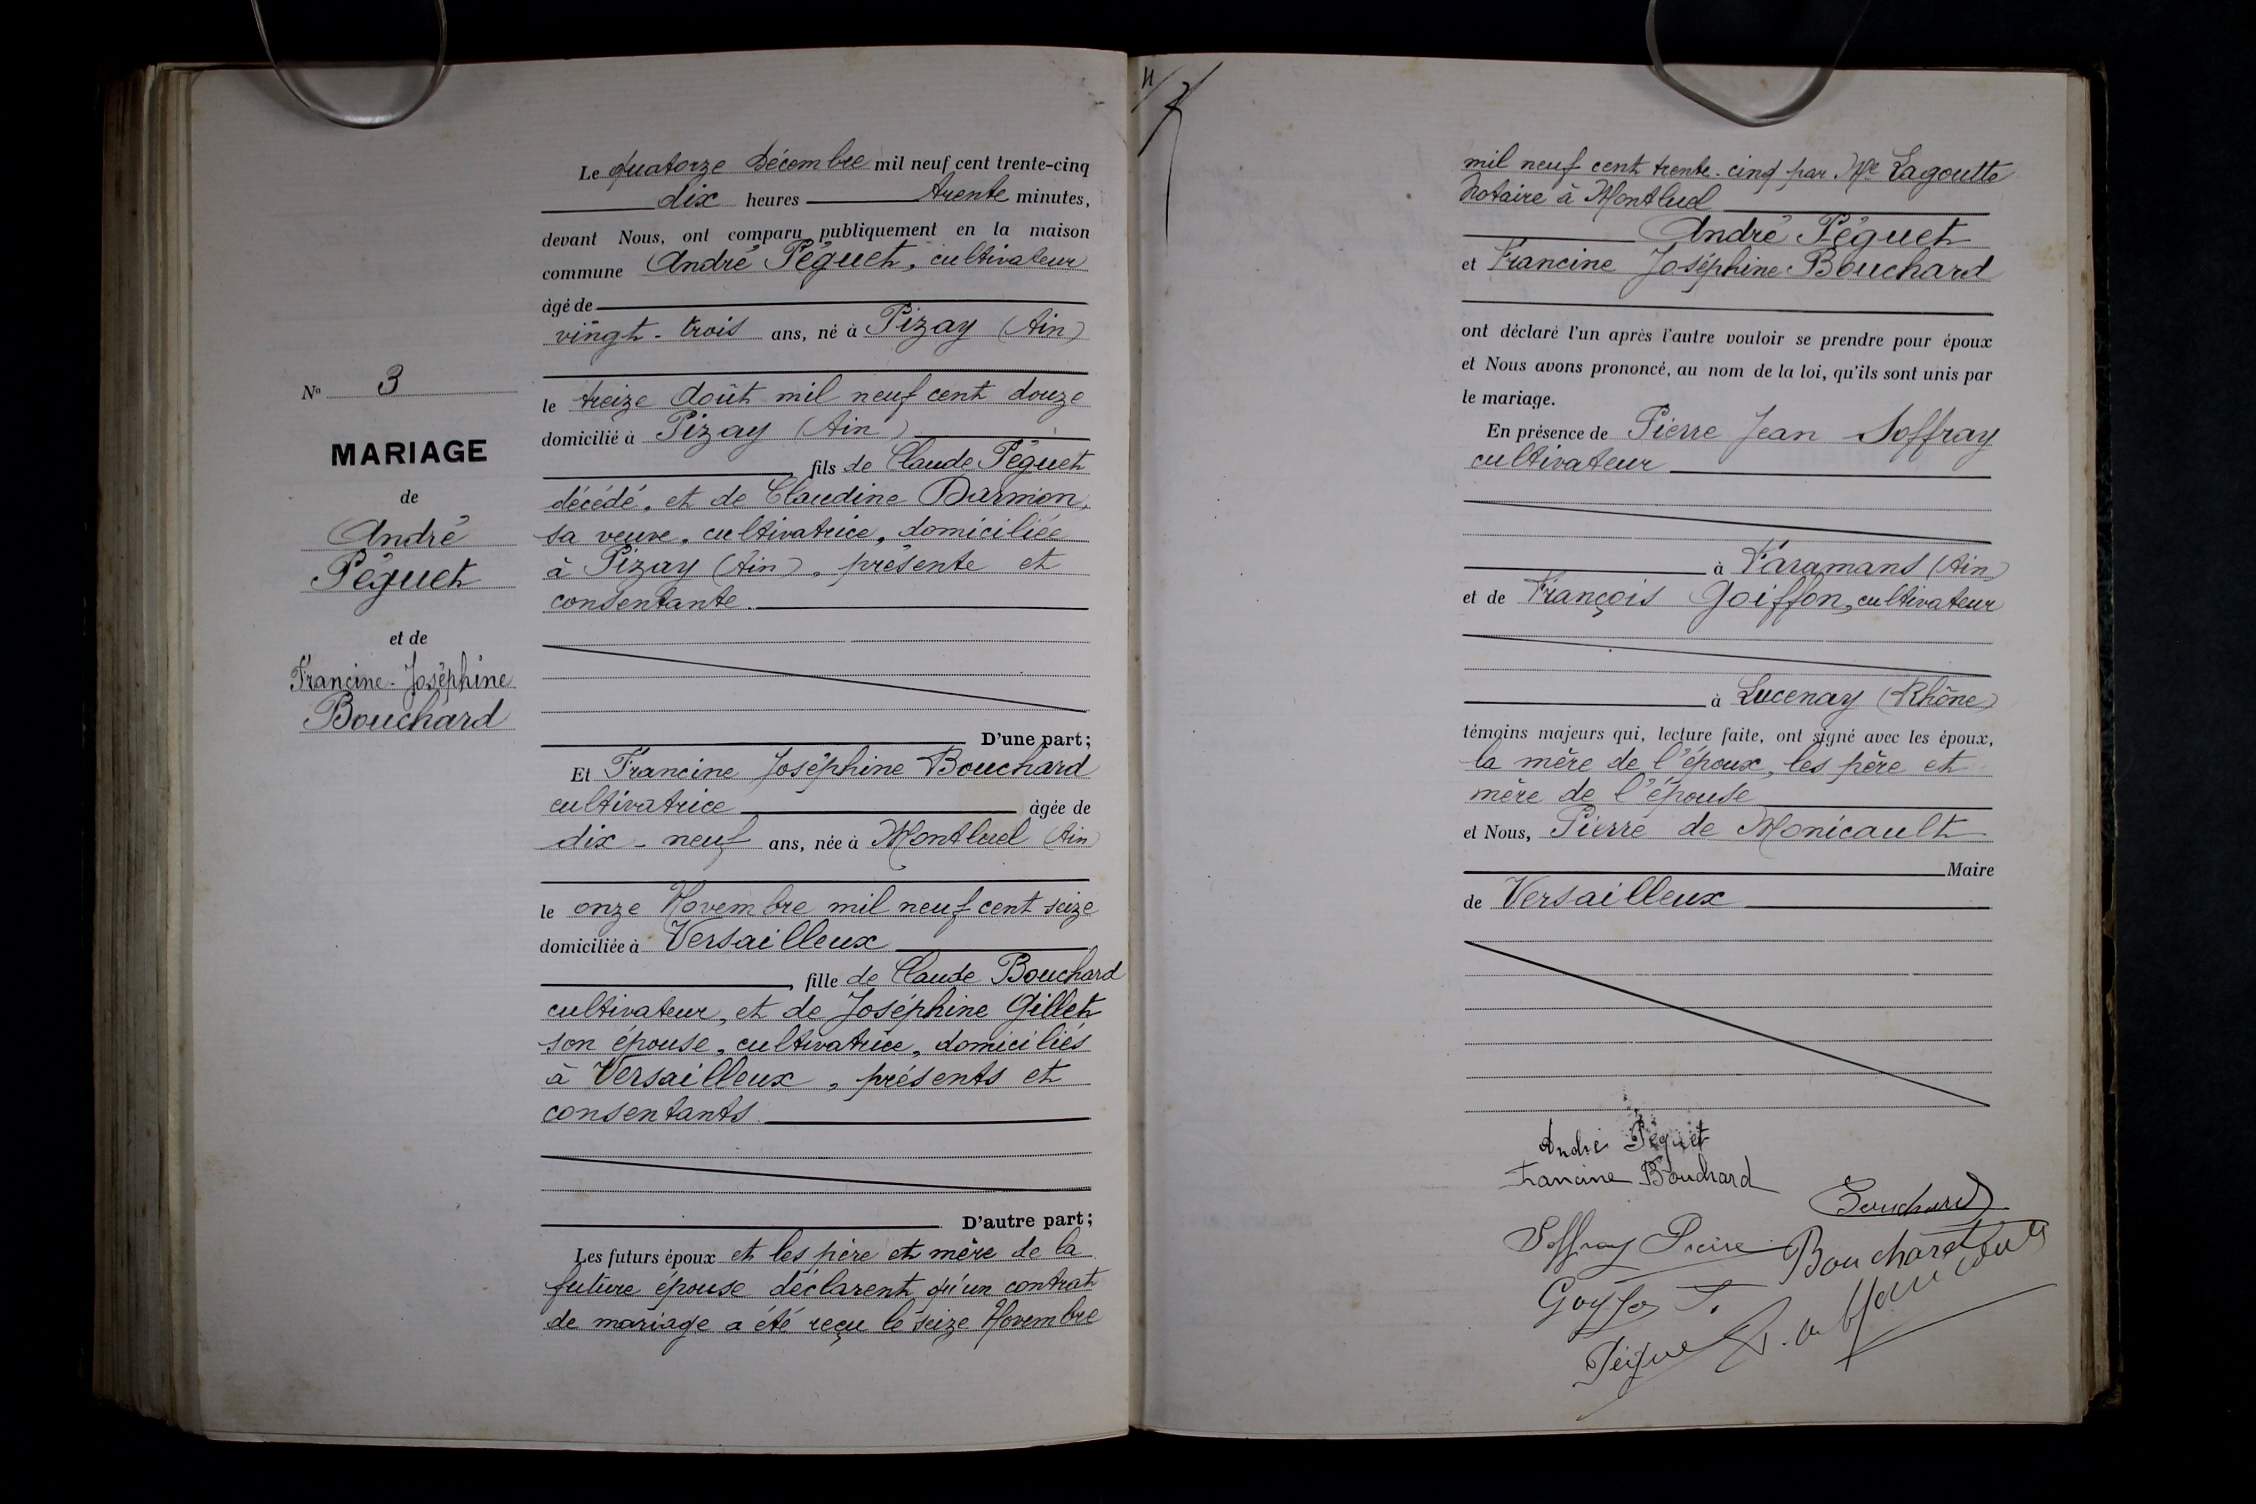 N° 3
MARIAGE
de
André
Péguet
et de
Francine-Joséphine
Bouchard
Le quatorze Décembre mil neuf cent trente-cinq
dix heures trente minutes,
devant Nous, ont comparu publiquement en la maison
commune André Péguet, cultivateur
âgé de
vingt-trois ans, né à Pizay (Ain)
le treize Août mil neuf cent douze
domicilié à Pizay (Ain)
, fils de Claude Péguet
décédé, et de Claudine Darmon,
sa veuve, cultivatrice, domiciliée
à Pizay (Ain), présente et
consentante.
D'une part;
Et Francine Joséphine Bouchard
cultivatrice âgée de
dix-neuf ans, née à Montluel (Ain)
le onze Novembre mil neuf cent seize
domiciliée à Versailleux
, fille de Claude Bouchard
cultivateur, et de Joséphine Gillet
son épouse, cultivatrice, domiciliés
à Versailleux, présents et
consentants.
D'autre part;
Les futurs époux et les père et mère de la
future épouse déclarent qu'un contrat
de mariage a été reçu le seize Novembre
mil neuf cent trente-cinq par Me Lagoutte
Notaire à Montluel
André Péguet
et Francine Joséphine Bouchard
ont déclaré l'un après l'autre vouloir se prendre pour époux
et Nous avons prononcé, au nom de la loi, qu'ils sont unis par
le mariage.
En présence de Pierre Jean Soffray
cultivateur
à Faramans (Ain)
et de François Goiffon, cultivateur
à Lucenay (Rhône)
témoins majeurs qui, lecture faite, ont signé avec les époux,
la mère de l'époux, les père et
mère de l'épouse
et Nous, Pierre de Monicault
Maire
de Versailleux
André Péguet
Francine Bouchard
Bouchard
Soffray Pierre
Bouchard